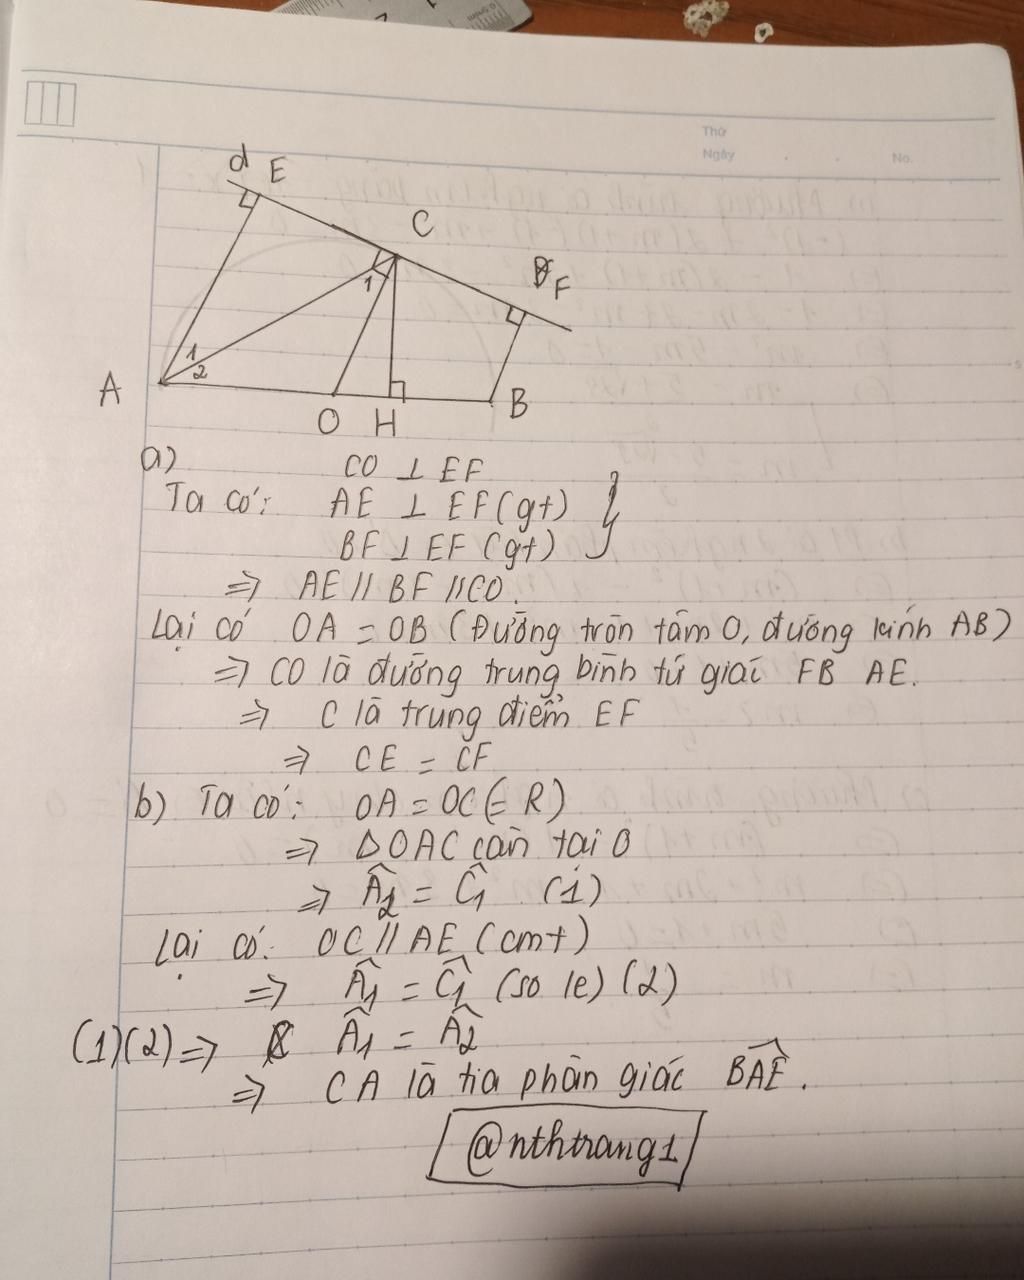 Thứ
Ngày . . No.
d E
C
F
1
1
2
A
O H
B
a) CO ⊥ EF
Ta có: AE ⊥ EF (gt) }
BF ⊥ EF (gt)
=> AE // BF // CO.
Lại có OA = OB (Đường tròn tâm O, đường kính AB)
=> CO là đường trung bình tứ giác FB AE.
=> C là trung điểm EF
=> CE = CF
b) Ta có: OA = OC (= R)
=> ΔOAC cân tại O
=> Â2 = Ĉ1 (1)
Lại có: OC // AE (cmt)
=> Â1 = Ĉ1 (so le) (2)
(1)(2) => Â1 = Â2
=> CA là tia phân giác BÂE.
@nthtrang1